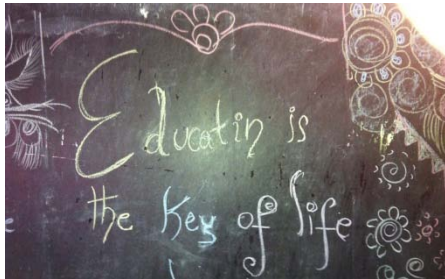 Educatin is
the key of life